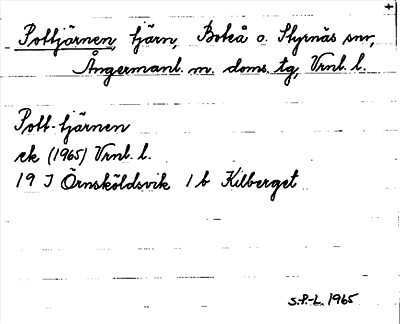 Pottjärnen, tjärn, Boteå o. Styrnäs snr,
Ångermanl. m. doms. tg, Vrnl. l.
Pott-tjärnen
ek (1965) Vrnl. l.
19 J Örnsköldsvik 1 b Kilberget
S.P-L. 1965